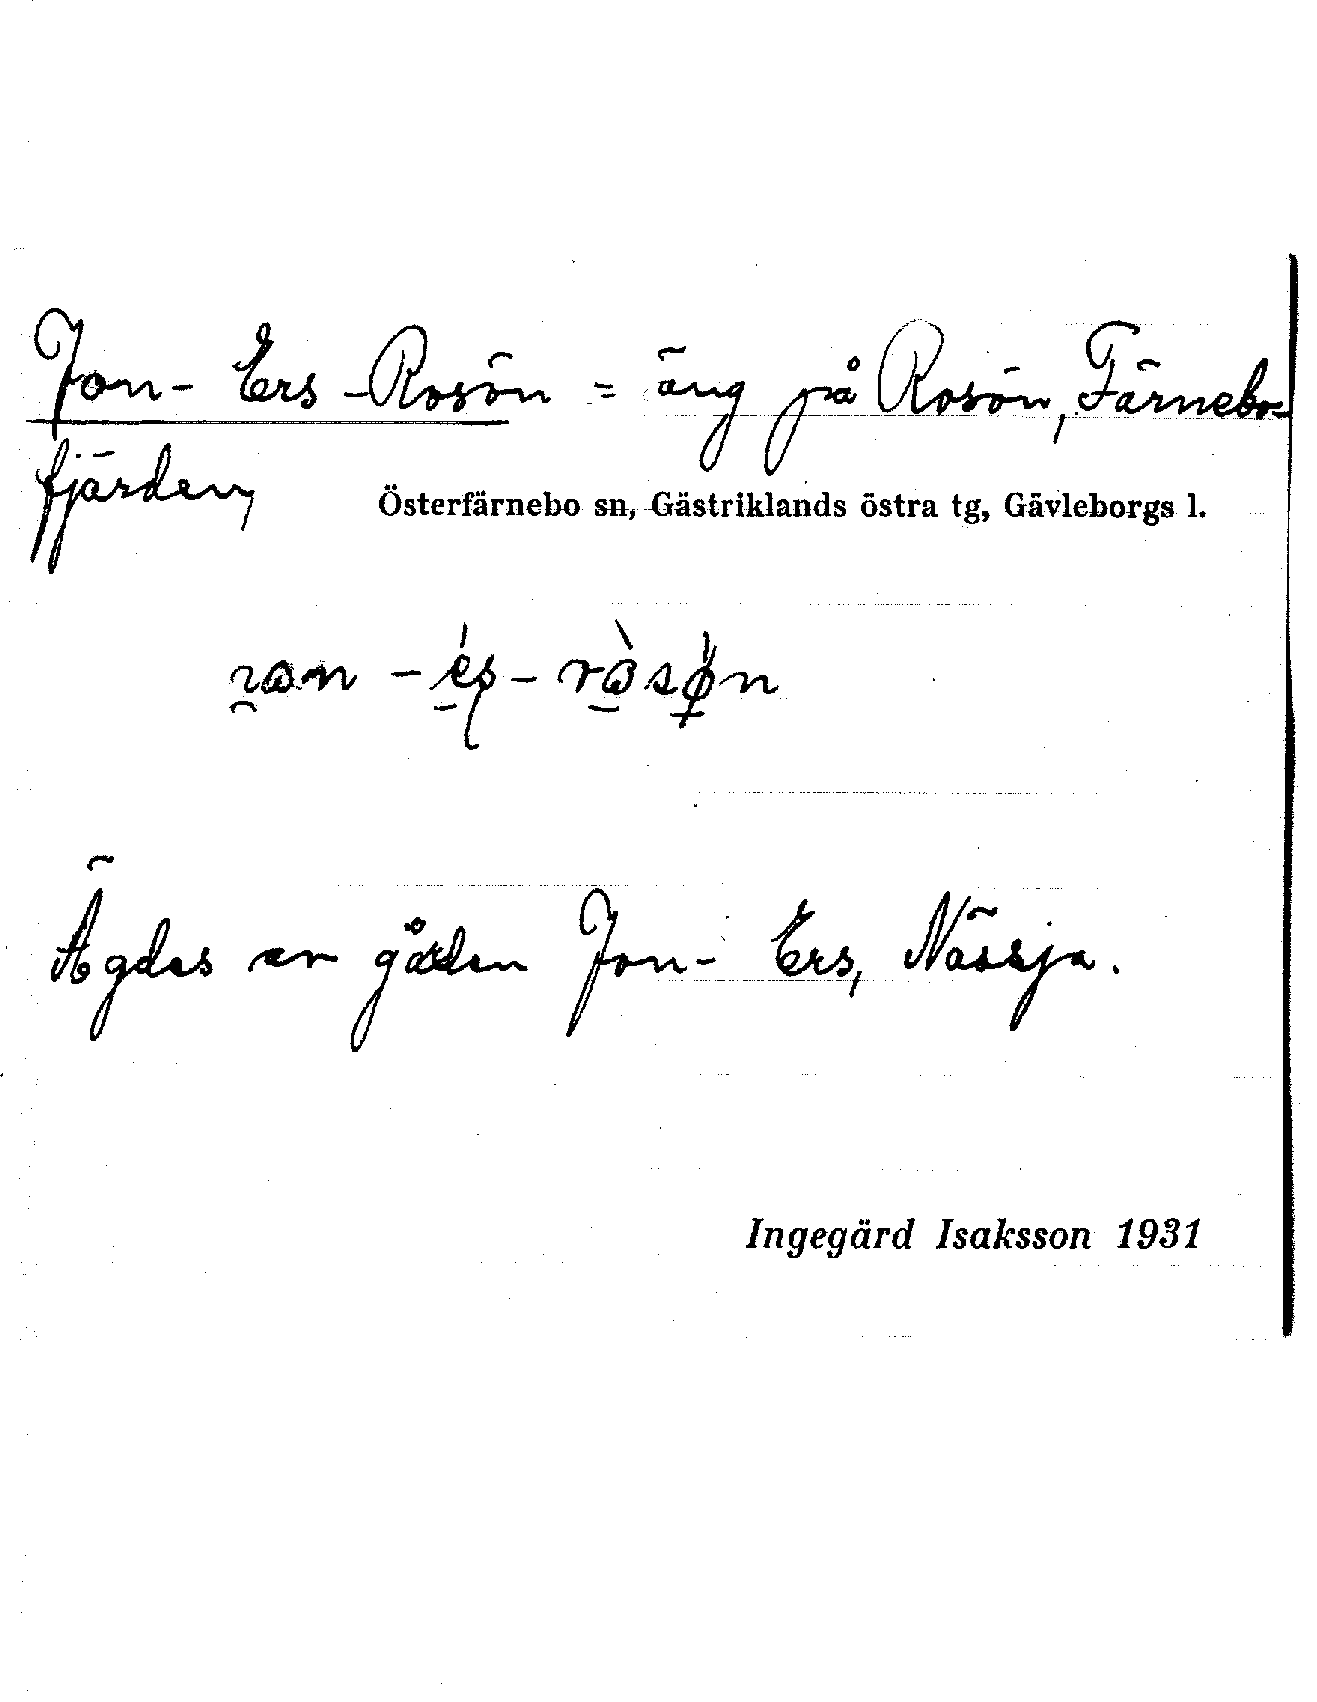 Jon-Ers-Rosön = äng på Rosön, Färnebo-
fjärden,
Österfärnebo sn, Gästriklands östra tg, Gävleborgs l.
Ägdes av gården Jon-Ers, Nässja.
Ingegärd Isaksson 1931